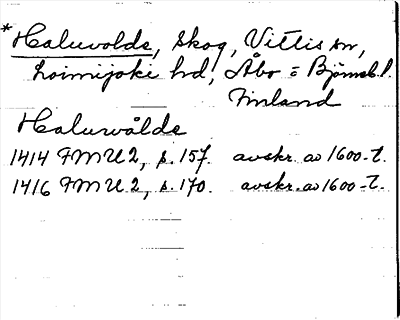 *Haluvolde, skog, Vittis sn,
Loimijoki hd, Åbo = Björneb. l.
Finland
Haluwålde
1414 FMU 2, s. 157. avskr. av 1600-t.
1416 FMU 2, s. 170. avskr. av 1600-t.